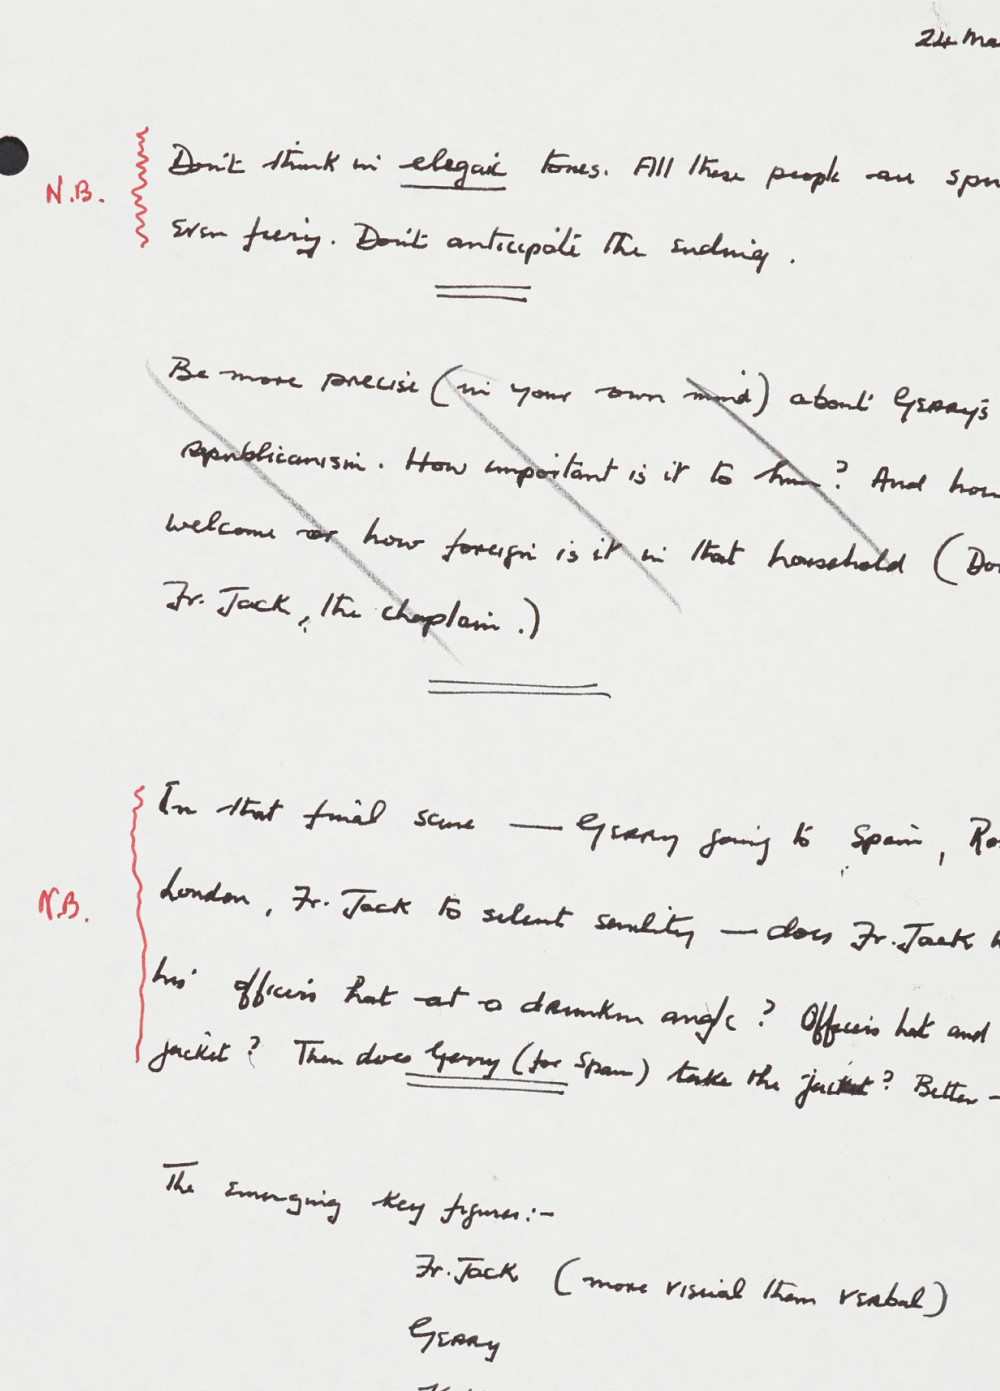 24 Ma
N.B.
Don't think in elegaic tones. All these people are spu
even fiery. Don't anticipate the ending.
Be more precise (in your own mind) about GERRY'S
republicanism. How important is it to him? And how
welcome or how foreign is it in that household (Do
Fr. Jack, the chaplain.)
In that final scene — GERRY going to Spain, Ro
N.B.
London, Fr. Jack to silent senility — does Fr. Jack h
his officer's hat at a drunken angle? Officer's hat and
jacket? Then does Gerry (for Spain) take the jacket? Better -
The emerging key figures:-
Fr. Jack (more visual than verbal)
GERRY